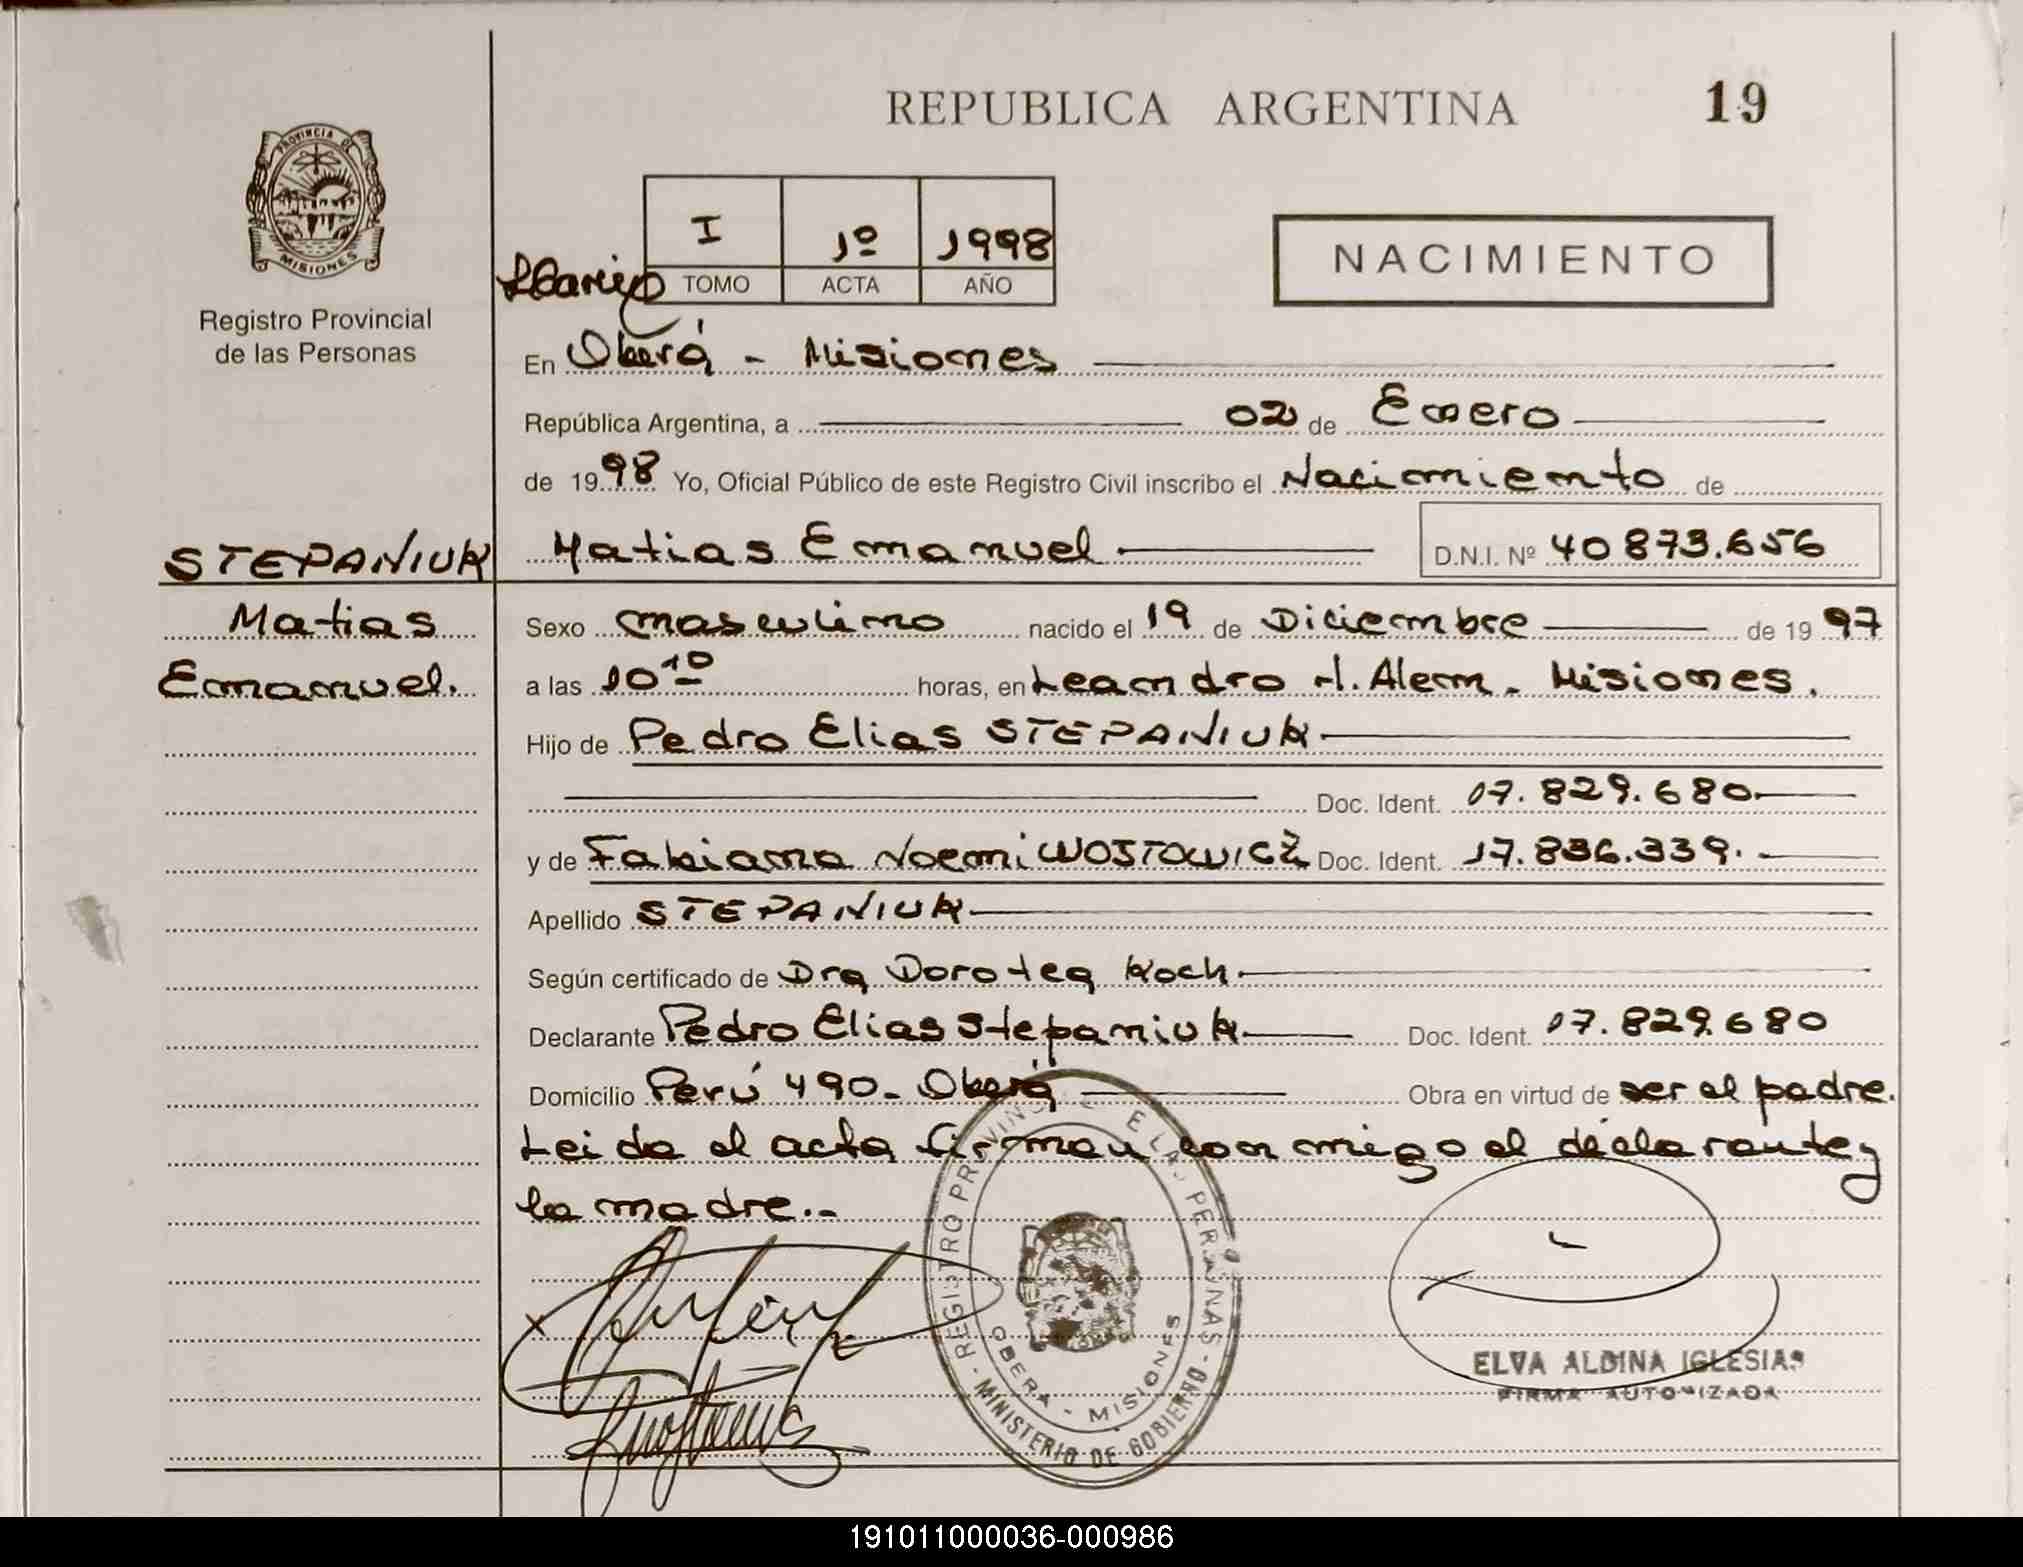 REPUBLICA ARGENTINA
19
PROVINCIA DE
MISIONES
Registro Provincial
de las Personas
I 1º 1998
TOMO ACTA AÑO
NACIMIENTO
En Oberá - Misiones
República Argentina, a 02 de Enero
de 1998 Yo, Oficial Público de este Registro Civil inscribo el Nacimiento de
STEPANIUK Matias Emanuel D.N.I. Nº 40873.656
Matias Sexo masculino nacido el 19 de Diciembre de 1997
Emanuel. a las 10 10 horas, en Leandro N. Alem - Misiones.
Hijo de Pedro Elias STEPANIUK
Doc. Ident. 17.829.680
y de Fabiana Noemi WOSTOWICZ Doc. Ident. 17.836.339.
Apellido STEPANIUK
Según certificado de Dra Dorotea Koch
Declarante Pedro Elias Stepaniuk Doc. Ident. 17.829.680
Domicilio Perú 490 - Oberá Obra en virtud de ser el padre.
Leida el acta firman conmigo el declarante y
la madre.-
REGISTRO PROVINCIAL DE LAS PERSONAS - MINISTERIO DE GOBIERNO -
OBERA - MISIONES
ELVA ALBINA IGLESIAS
FIRMA AUTORIZADA
191011000036-000986